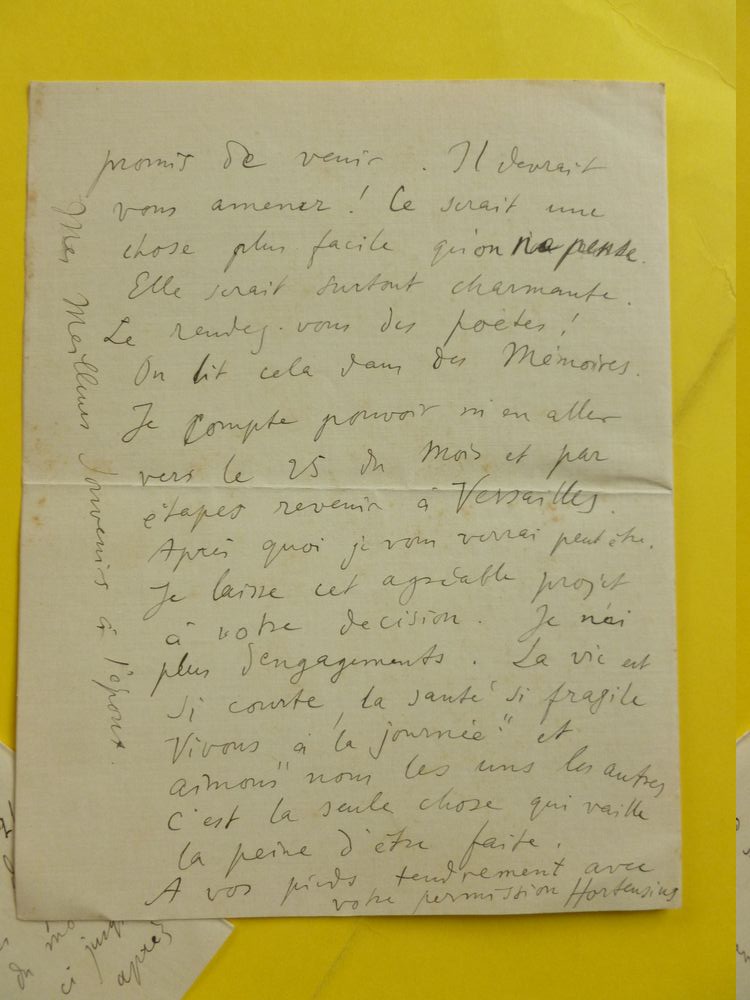 promis de venir. Il devrait
vous amener! Ce serait une
chose plus facile qu'on ne pense.
Elle serait surtout charmante.
Le rendez-vous des poètes!
On lit cela dans des Mémoires.
Je compte pouvoir m'en aller
vers le 25 du mois et par
étapes revenir à Versailles.
Après quoi je vous verrai peut être.
Je laisse cet agréable projet
à votre decision. Je n'ai
plus d'engagements. La vie est
si courte, la santé si fragile
Vivons "à la journée" et
aimons "nous les uns les autres
C'est la seule chose qui vaille
la peine d'être faite.
A vos pieds tendrement avec
votre permission Hortensius
Mes Meilleurs Souvenirs à l'époux.
du
ci jusq
après